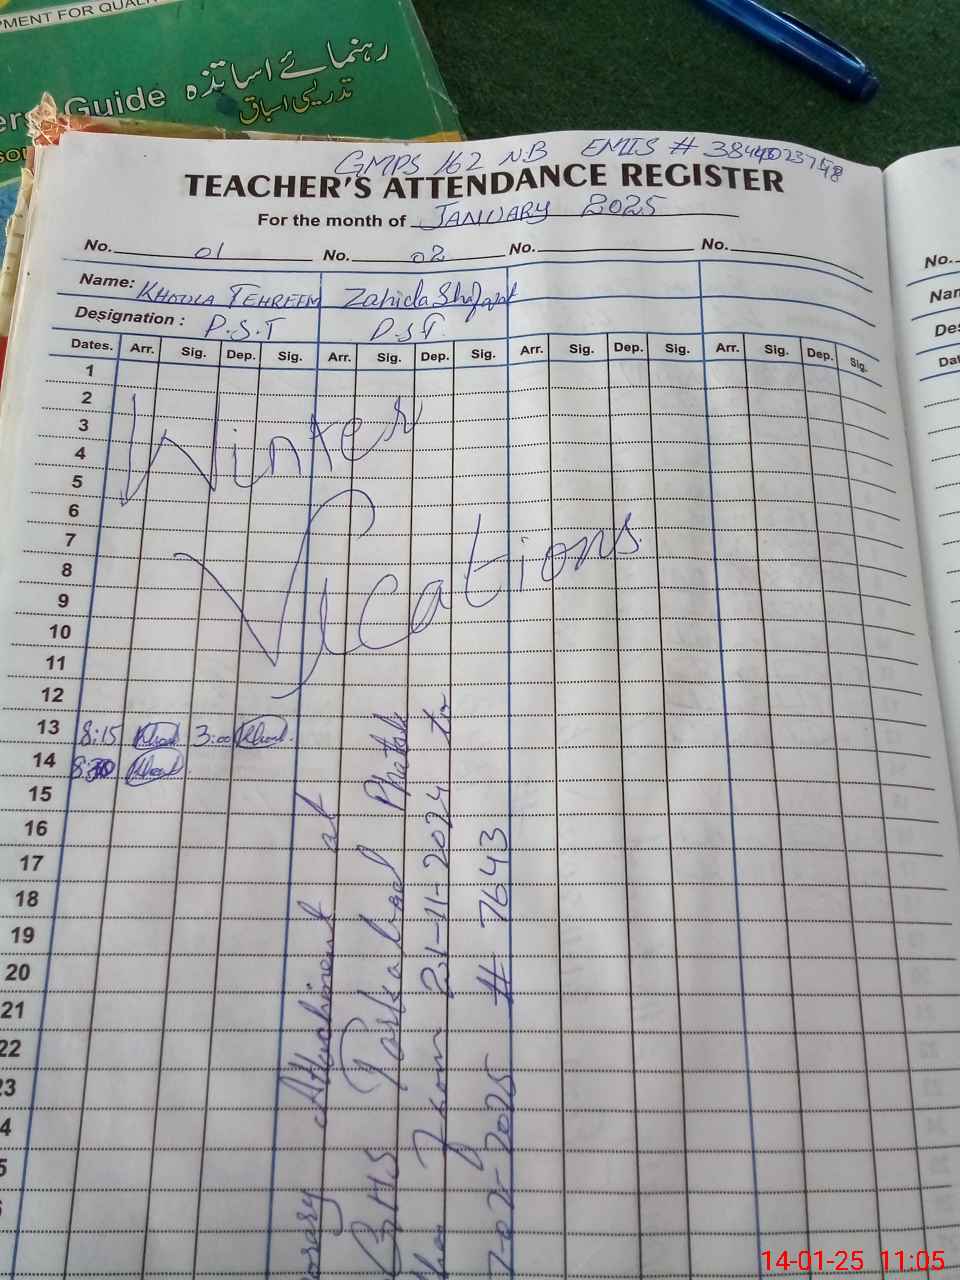 PMENT FOR QUALI
رہنمائے اساتذہ
ers Guide
تدریسی اسباق
GMPS 162 N.B EMIS #
TEACHER'S ATTENDANCE REGISTER
For the month of JANUARY 2025
No. 01 No. 02 No. No.
Name: KHOULA TEHREEM Zahida
Designation : P.S.T P.S.T
Dates. Arr. Sig. Dep. Sig. Arr. Sig. Dep. Sig. Arr. Sig. Dep. Sig. Arr. Sig. Dep. Sig.
1
2
3
4
5
6
7
8
9
10
11
12
Winter
Vications
13 8:15 3:00
14
15
16
17
18
19
20
21
22
23
4
5
orary Attachment at
GHS Phatak
from 21-11-2024 to
2025 # 7643
No.
Nam
Des
Dat
14-01-25 11:05